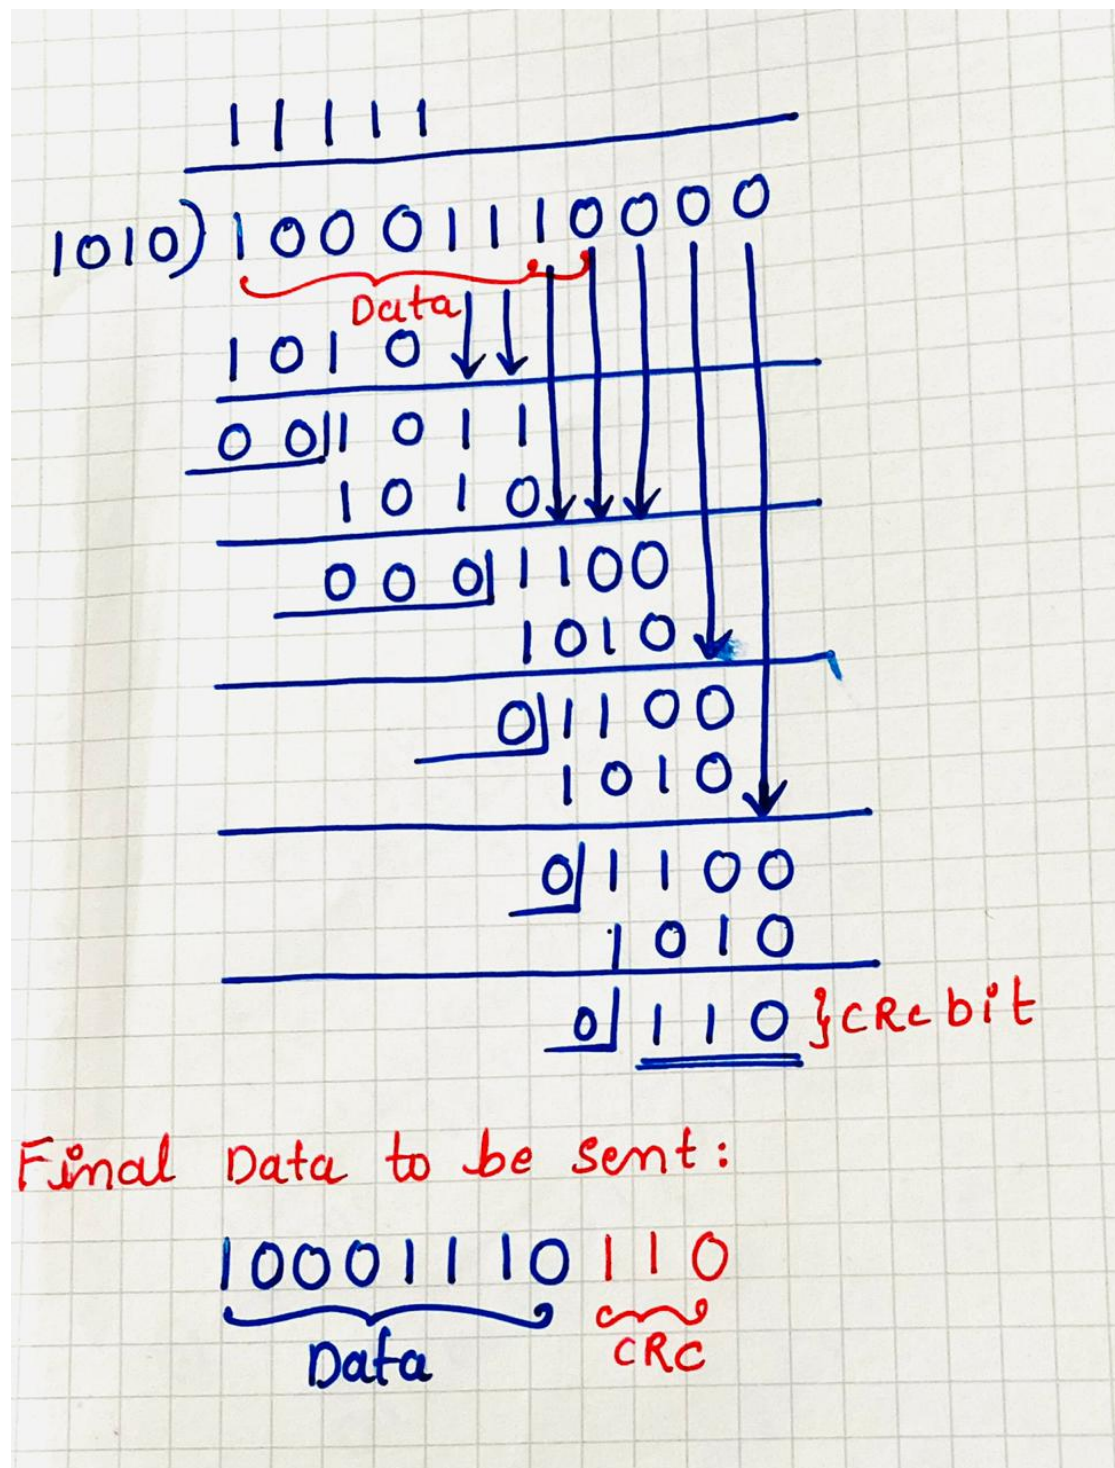 11111
1010)10001110000
Data
1010
001011
1010
0001100
1010
01100
1010
01100
1010
0110 }CRC bit
Final Data to be sent:
10001110110
Data CRC